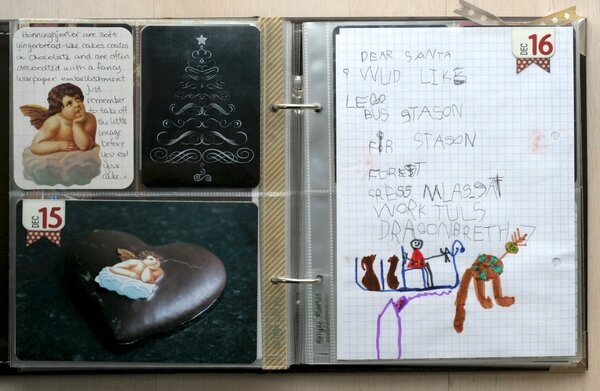 Honninghjerter are soft
gingerbread-like cakes coated
in chocolate and are often
decorated with a fancy
wa paper embellishment.
Just
remember
to take off
the little
image
before
you eat
your
cake :)
DEC 15
DEC 16
DEAR SANTA
I WUD LIKE
LEGO
BUS STASON
FIR STASON
FOREST
CRESS MASSAT
WORK TULS
DRAGONBRETH